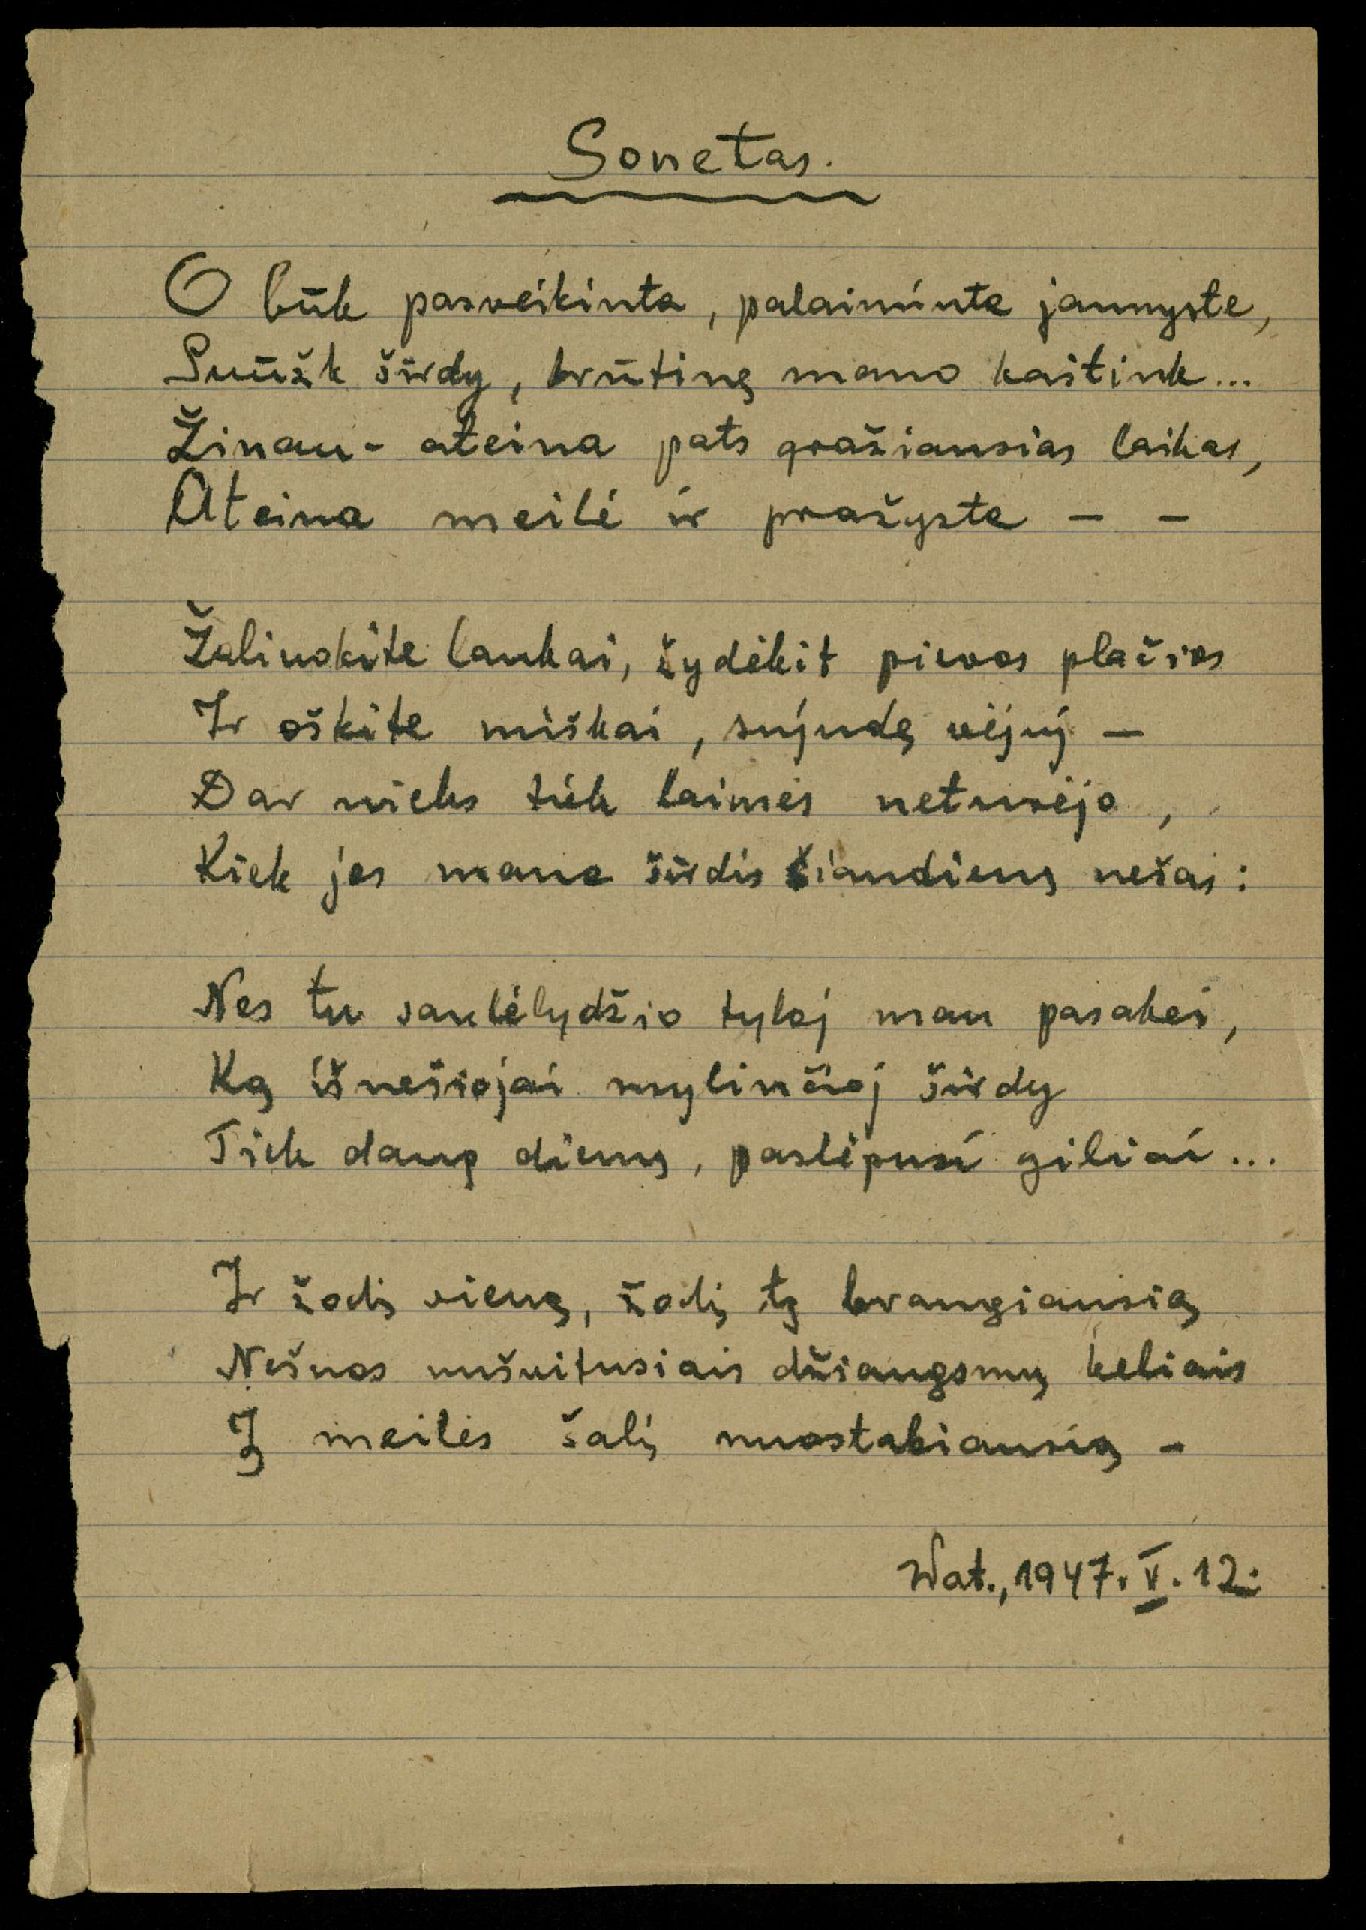 Sonetas.
O būk pasveikinta, palaiminta jaunyste,
Suūžk širdy, krūtinę mano kaitink...
Žinau - ateina pats gražiausias laikas,
Ateina meilė ir pražysta – –
Žaliuokite laukai, žydėkit pievos plačios
Ir oškite miškai, sujudę vėjuj –
Dar nieks tiek laimės neturėjo,
Kiek jos mano širdis šiandieną nešas:
Nes tu saulėlydžio tyloj man pasakei,
Ką išnešiojai mylinčioj širdy
Tiek daug dienų, paslėpusi giliai...
Ir žodį vieną, žodį tą brangiausią
Nešuos nušvitusiais džiaugsmų keliais
Į meilės šalį nuostabiausią –
Wat., 1947. V. 12.